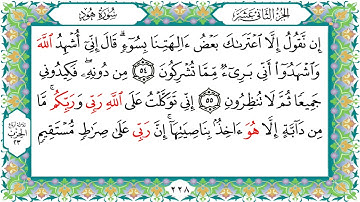 الجزء الثاني عشر
سورة هود
إِن نَّقُولُ إِلَّا ٱعْتَرَىٰكَ بَعْضُ ءَالِهَتِنَا بِسُوٓءٍ ۗ قَالَ إِنِّىٓ أُشْهِدُ ٱللَّهَ
وَٱشْهَدُوٓا۟ أَنِّى بَرِىٓءٌ مِّمَّا تُشْرِكُونَ ٥٤ مِن دُونِهِۦ ۖ فَكِيدُونِى
جَمِيعًا ثُمَّ لَا تُنظِرُونِ ٥٥ إِنِّى تَوَكَّلْتُ عَلَى ٱللَّهِ رَبِّى وَرَبِّكُم ۚ مَّا
مِن دَآبَّةٍ إِلَّا هُوَ ءَاخِذٌۢ بِنَاصِيَتِهَآ ۚ إِنَّ رَبِّى عَلَىٰ صِرَٰطٍ مُّسْتَقِيمٍ
الحزب
٢٣
٢٢٨